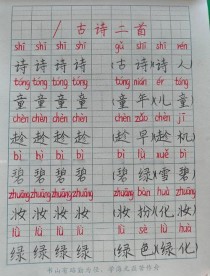 1 古诗二首
shī shī shī gǔ shī rén
诗 诗 诗 (古诗)(诗人)
tóng tóng tóng tóng nián ér tóng
童 童 童 (童年)(儿童)
chèn chèn chèn chèn zǎo jī
趁 趁 趁 (趁早)(趁机)
bì bì bì bì lǜ xuě bì
碧 碧 碧 (碧绿)(雪碧)
zhuāng zhuāng zhuāng zhuāng bàn huà zhuāng
妆 妆 妆 (妆扮)(化妆)
lǜ lǜ lǜ lǜ sè huà
绿 绿 绿 (绿色)(绿化)
书山有路勤为径，学海无涯苦作舟